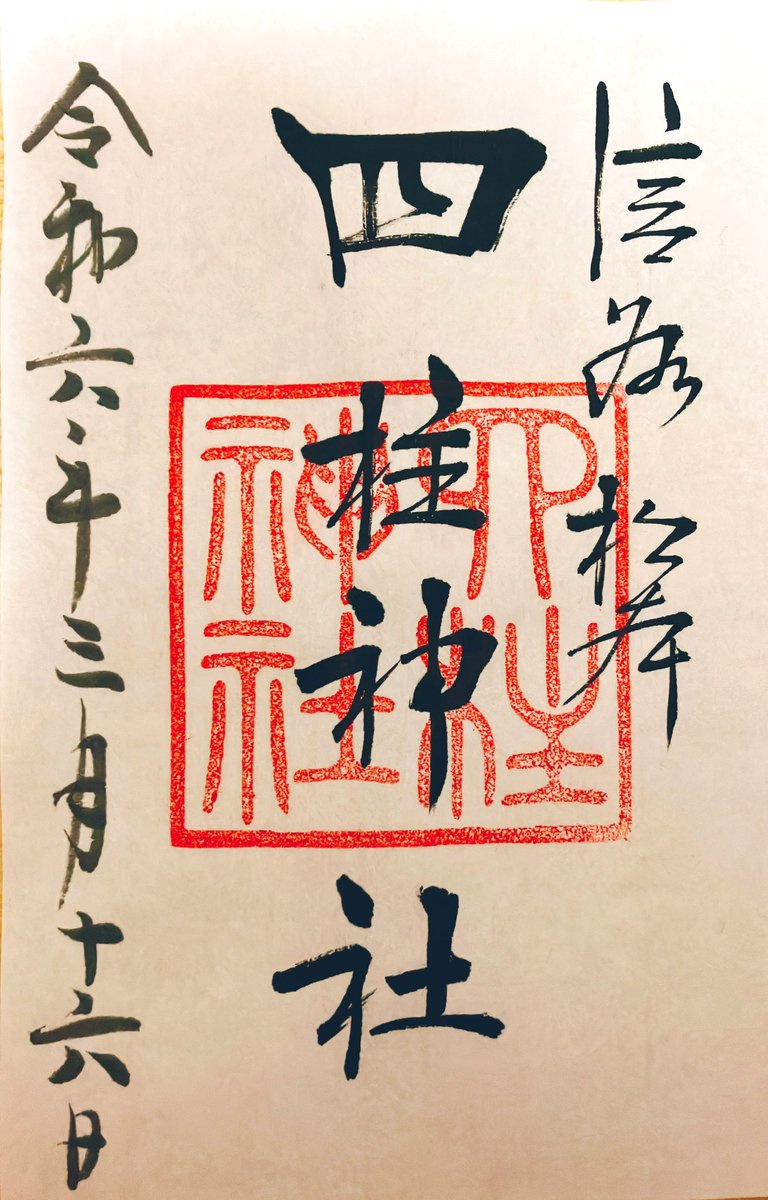 信 松本
四柱神社
令和六年三月十六日
四柱
神社